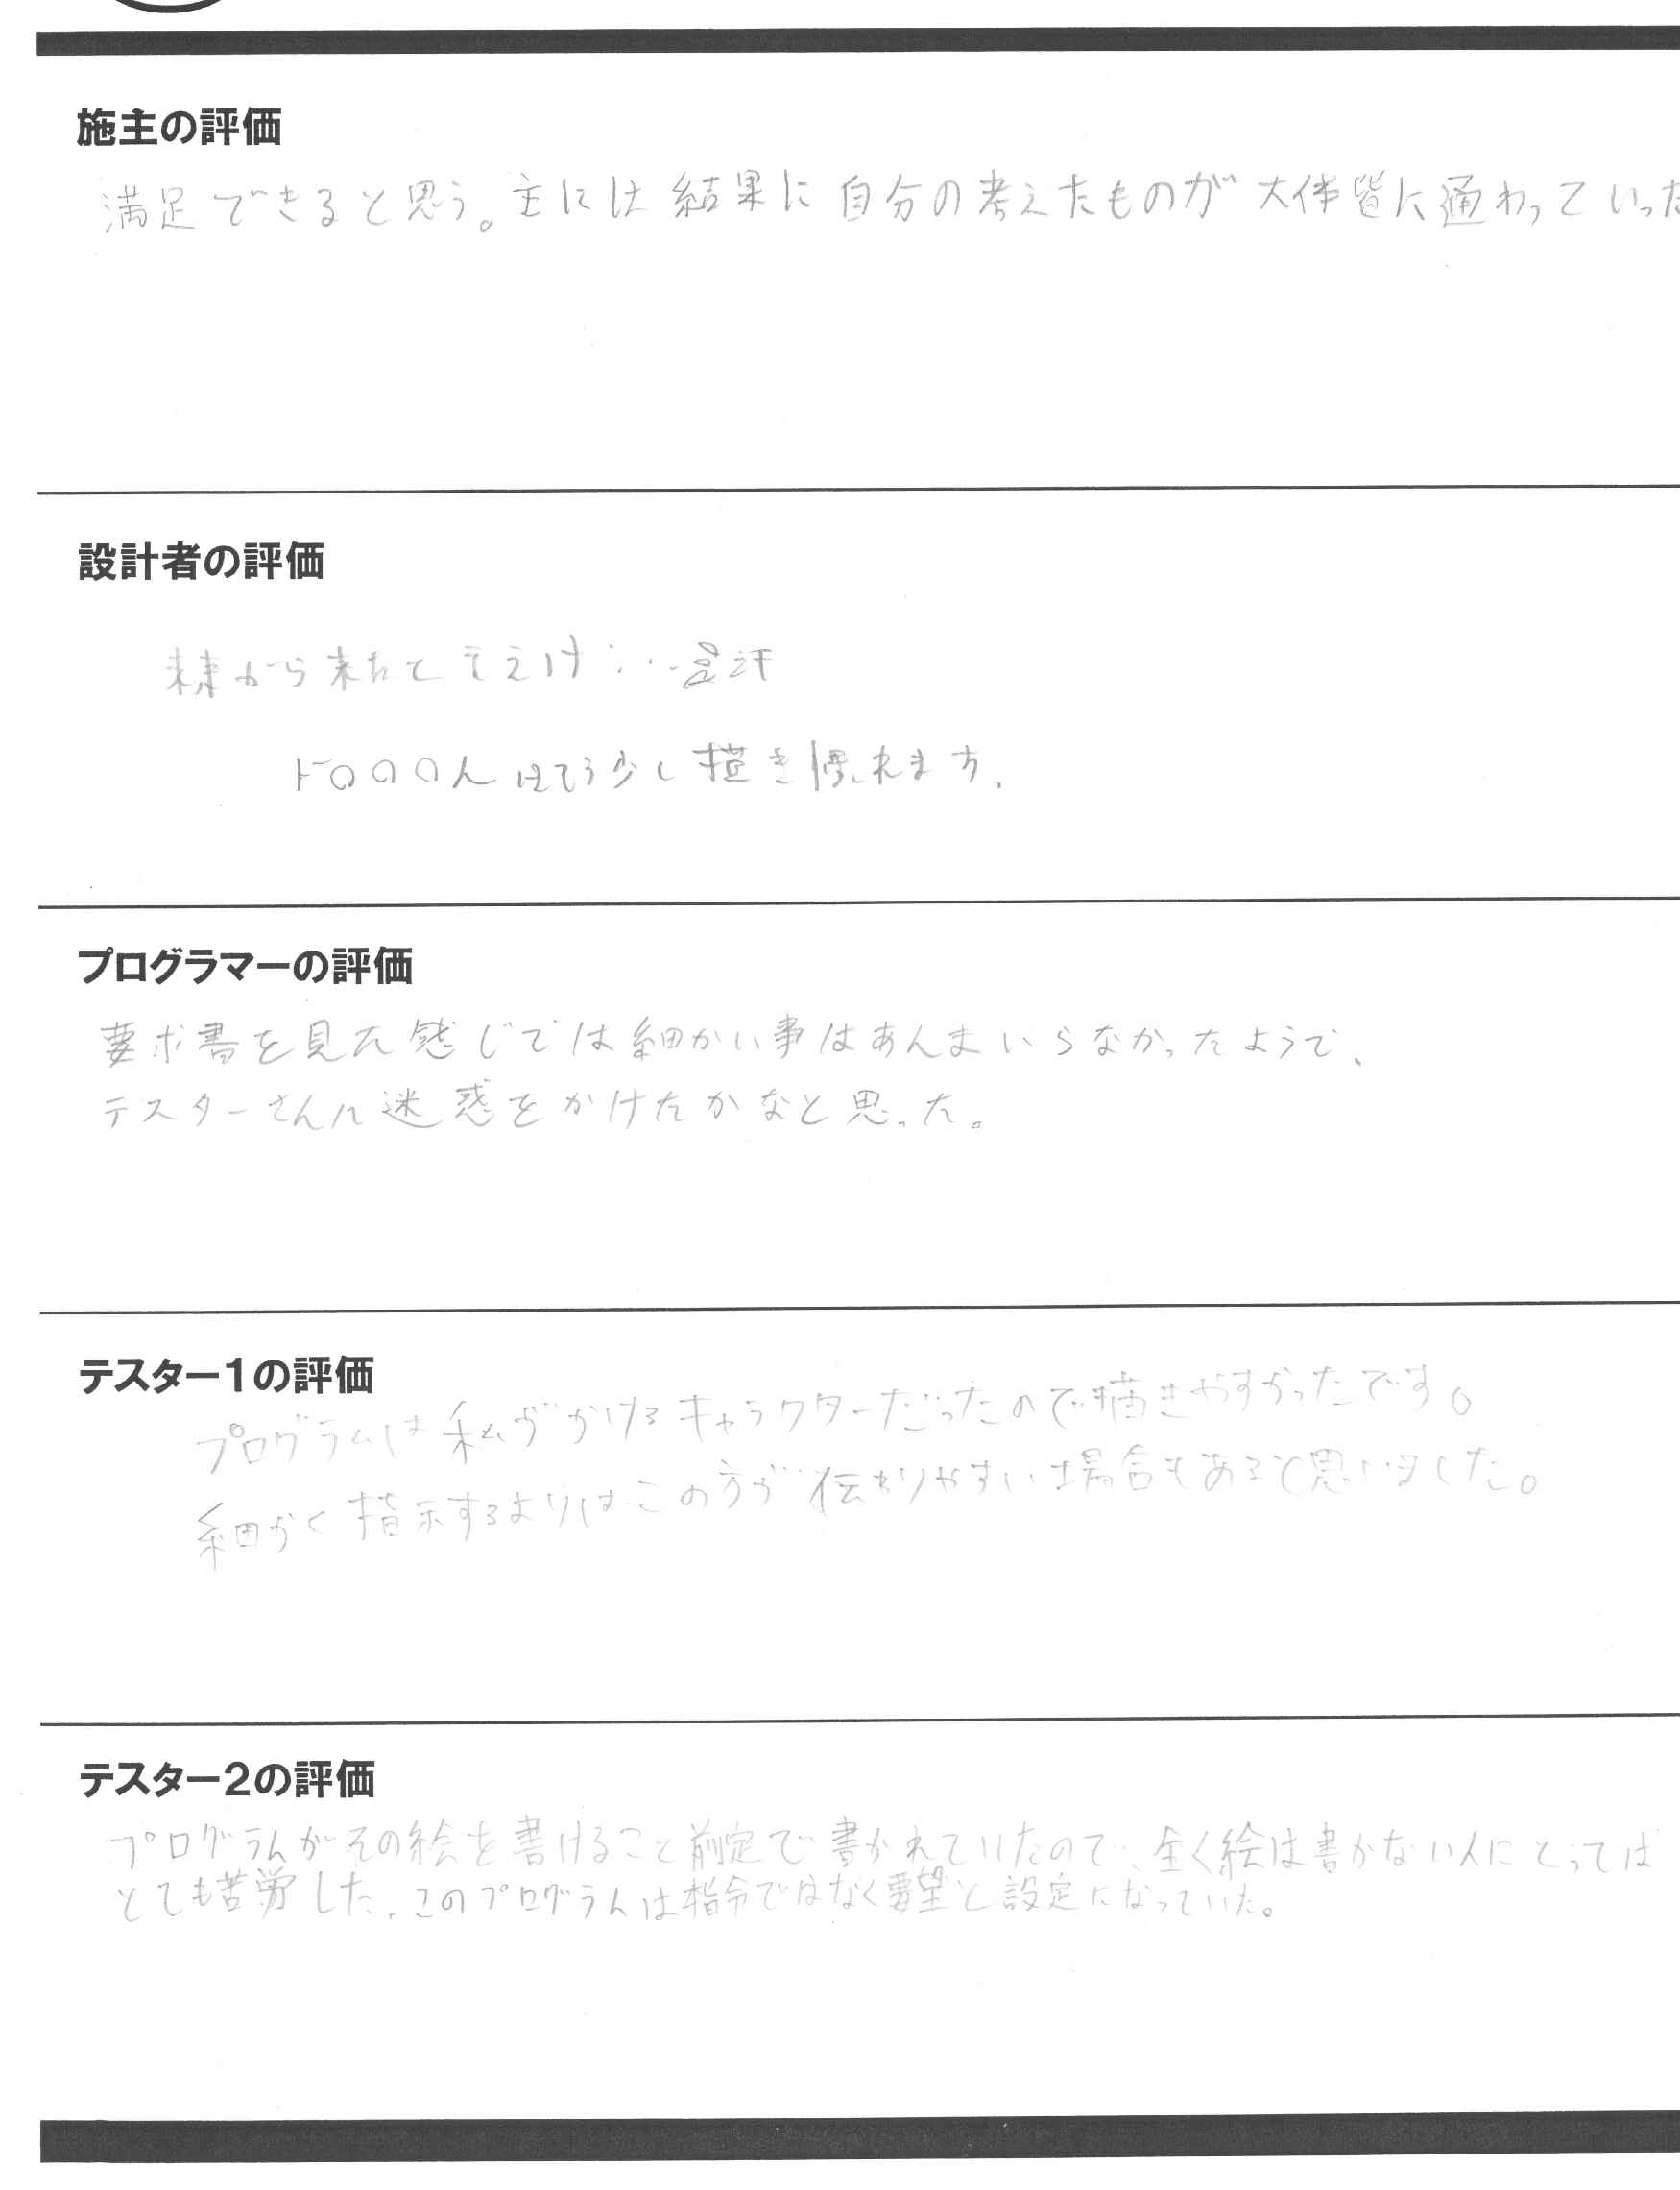 施主の評価
満足できると思う。主には結果に自分の考えたものが大体皆に通わっていった
設計者の評価
から来たて
ドロ〇〇〇人はもう少し描き慣れます.
プログラマーの評価
要求書を見た感じでは細かい事はあんまいらなかったようで、
テスターさんに迷惑をかけたかなと思った。
テスター1の評価
プログラムは私がかけるキャラクターだったので描きやすかったです。
細かく指示するよりはこの方が伝わりやすい場合もあると思いました。
テスター2の評価
プログラムがその絵を書けること前定で書かれていたので、全く絵は書かない人にとっては
とても苦労した.このプログラムは指令ではなく要望と設定になっていた。